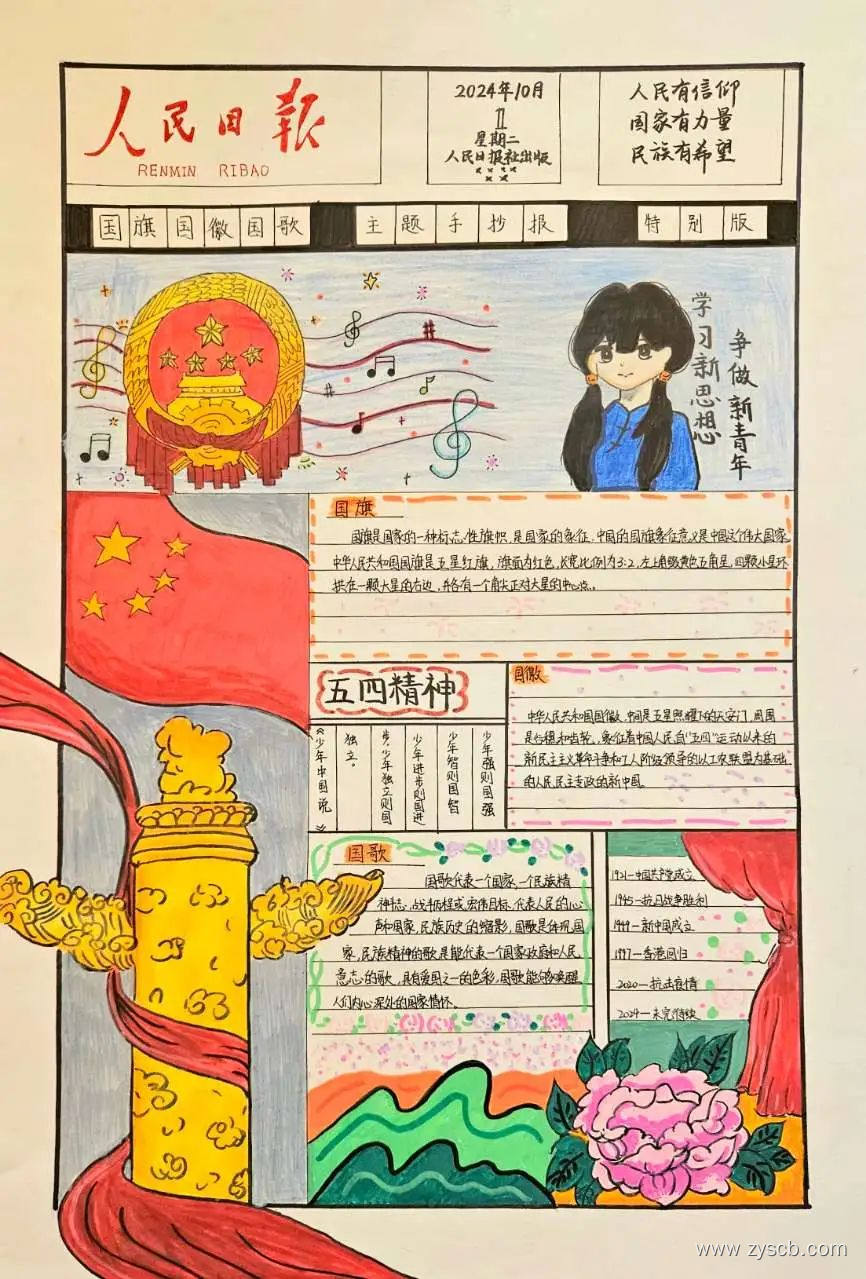 人民日报
RENMIN RIBAO
2024年10月
1
星期二
人民日报社出版
人民有信仰
国家有力量
民族有希望
国旗国徽国歌
主题手抄报
特别版
学习新思想
争做新青年
国旗
国旗是国家的一种标志性旗帜,是国家的象征,中国的国旗象征意义是中国这个伟大国家,
中华人民共和国国旗是五星红旗,旗面为红色,长宽比例为3:2,左上角缀黄色五角星,四颗小星环
拱在一颗大星的右边,并各有一个角尖正对大星的中心点。
五四精神
少年强则国强
少年智则国智
少年进步则国进
步,少年独立则国
独立。
《少年中国说》
国徽
中华人民共和国国徽,中间是五星照耀下的天安门,周围
是谷穗和齿轮,象征着中国人民自"五四"运动以来的
新民主主义革命斗争和工人阶级领导的以工农联盟为基础
的人民民主专政的新中国。
国歌
国歌代表一个国家,一个民族精
神志,战斗历程或宏伟目标,代表人民的心
声和国家,民族历史的缩影,国歌是体现国
家,民族精神的歌,是能代表一个国家政府和人民
意志的歌,具有爱国之一的色彩,国歌能够唤醒
人们内心深处的国家情怀。
1921—中国共产党成立
1945—抗日战争胜利
1949—新中国成立
1997—香港回归
2020—抗击疫情
2024—未完待续
www.zyscb.com